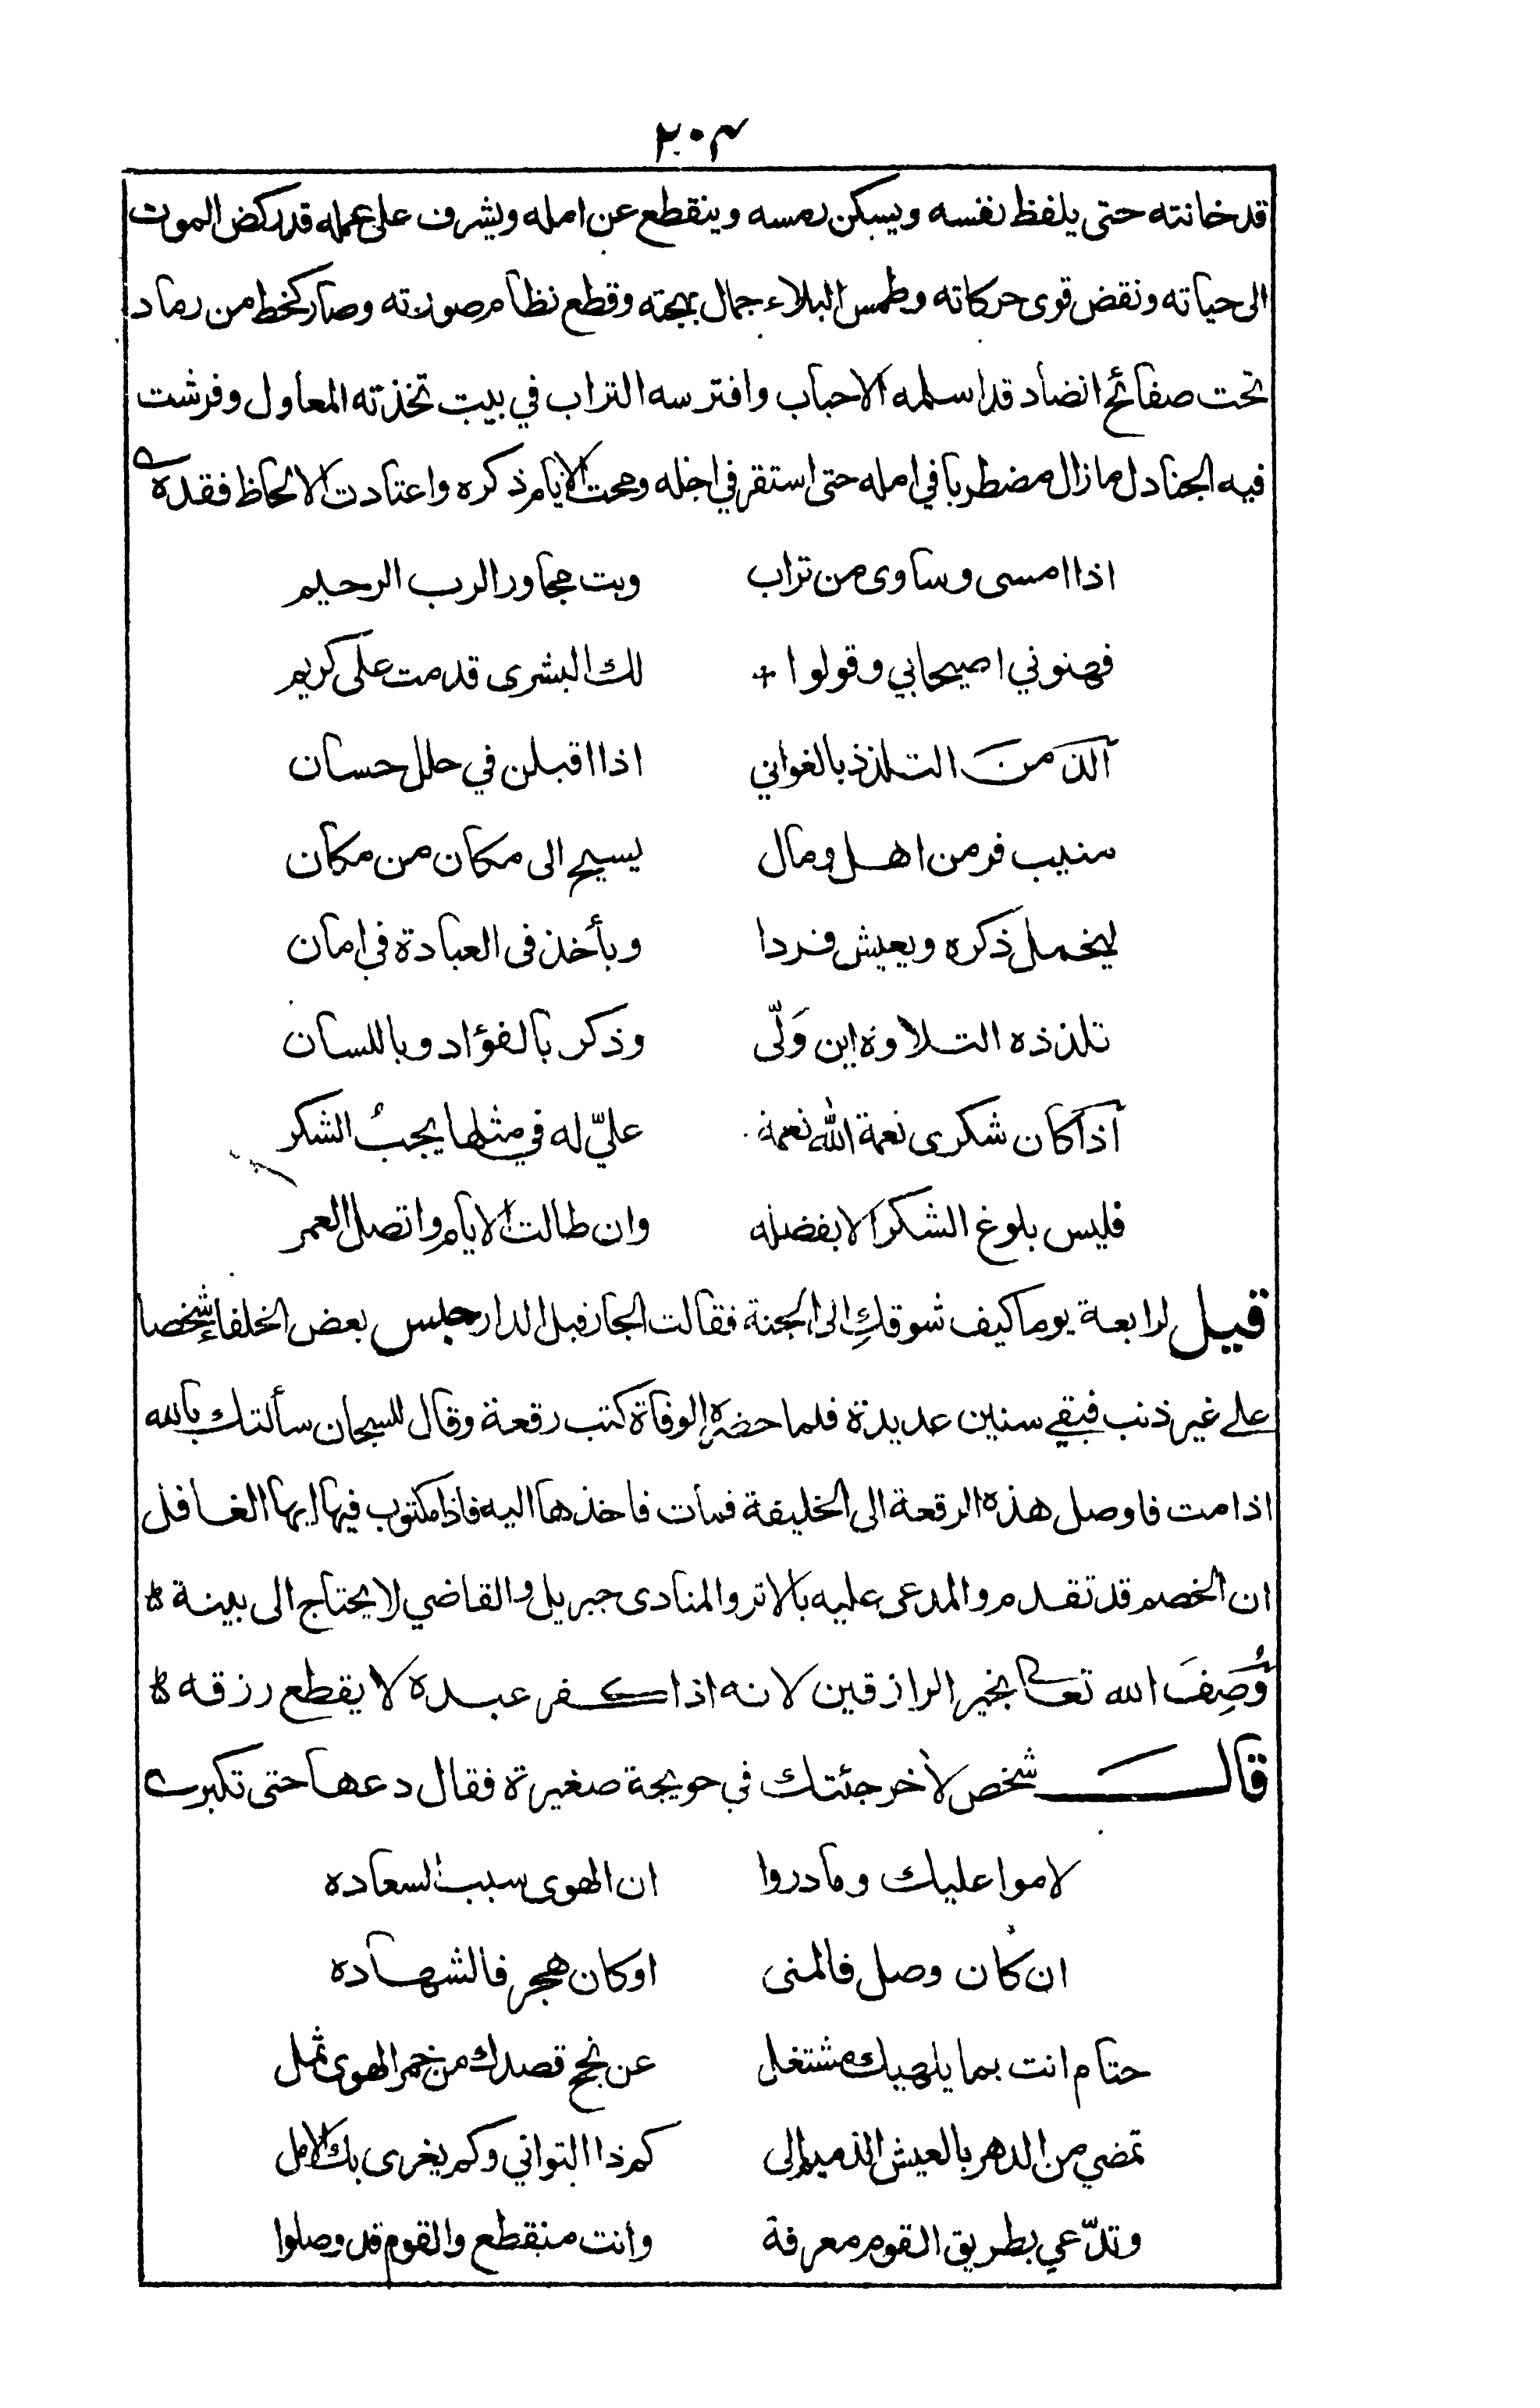 ٢٠٣
قد خانته حتى يلفظ نفسه ويسكن رمسه وينقطع عن امله ويشرف على عمله قد ركض الموت
الى حياته ونقض قوى حركاته وطمس البلاء جمال بهجته وقطع نظام صورته وصار كخط من رماد
تحت صفائح انضاد قد اسلمه الاحباب وافترسه التراب في بيت تخذته المعاول وفرشت
فيه الجنادل مازال مضطربا في امله حتى استقر في اجله ومحت الايام ذكره واعتادت الالحاظ فقده
اذا امسى وساوى من تراب وبت مجاور الرب الرحيم
فهنوني اصيحابي وقولوا لك البشرى قدمت على كريم
آلذ من التلذذ بالغواني اذا اقبلن في حلل حسان
منيب فر من اهل ومال يسيح الى مكان من مكان
ليخمل ذكره ويعيش فردا وبأخذ في العبادة في امان
تلذذه التلاوة اين وَلّى وذكر بالفؤاد وباللسان
اذا كان شكرى نعمة الله نعمة عليّ له في مثلها يجبُ الشكر
فليس بلوغ الشكر الا بفضله وان طالت الايام واتصل العمر
قيل لرابعة يوما كيف شوقكِ الى الجنة فقالت الجار قبل الدار حبس بعض الخلفاء شخصا
على غير ذنب فبقي سنين عديدة فلما حضرته الوفاة كتب رقعة وقال للسجان سألتك بالله
اذا مت فاوصل هذه الرقعة الى الخليفة فمات فاخذها اليه فاذا مكتوب فيها ايها الغافل
ان الخصم قد تقدم والمدعى عليه بالاثر والمنادى جبريل والقاضي لا يحتاج الى بينة
وُصِفَ الله تعالى بخير الرازقين لانه اذا كفر عبده لا يقطع رزقه
قال شخص لأخر جئتك في حويجة صغيرة فقال دعها حتى تكبر
لاموا عليك ومادروا ان الهوى سبب السعاده
ان كان وصل فالمنى او كان هجر فالشهاده
حتام انت بما يلهيك مشتغل عن نجح قصدك من خمر الهوى ثمل
تمضي من الدهر بالعيش الذميم الى كم ذا التواني وكم يغرى بك الامل
وتدّعي بطريق القوم معرفة وانت منقطع والقوم قد وصلوا